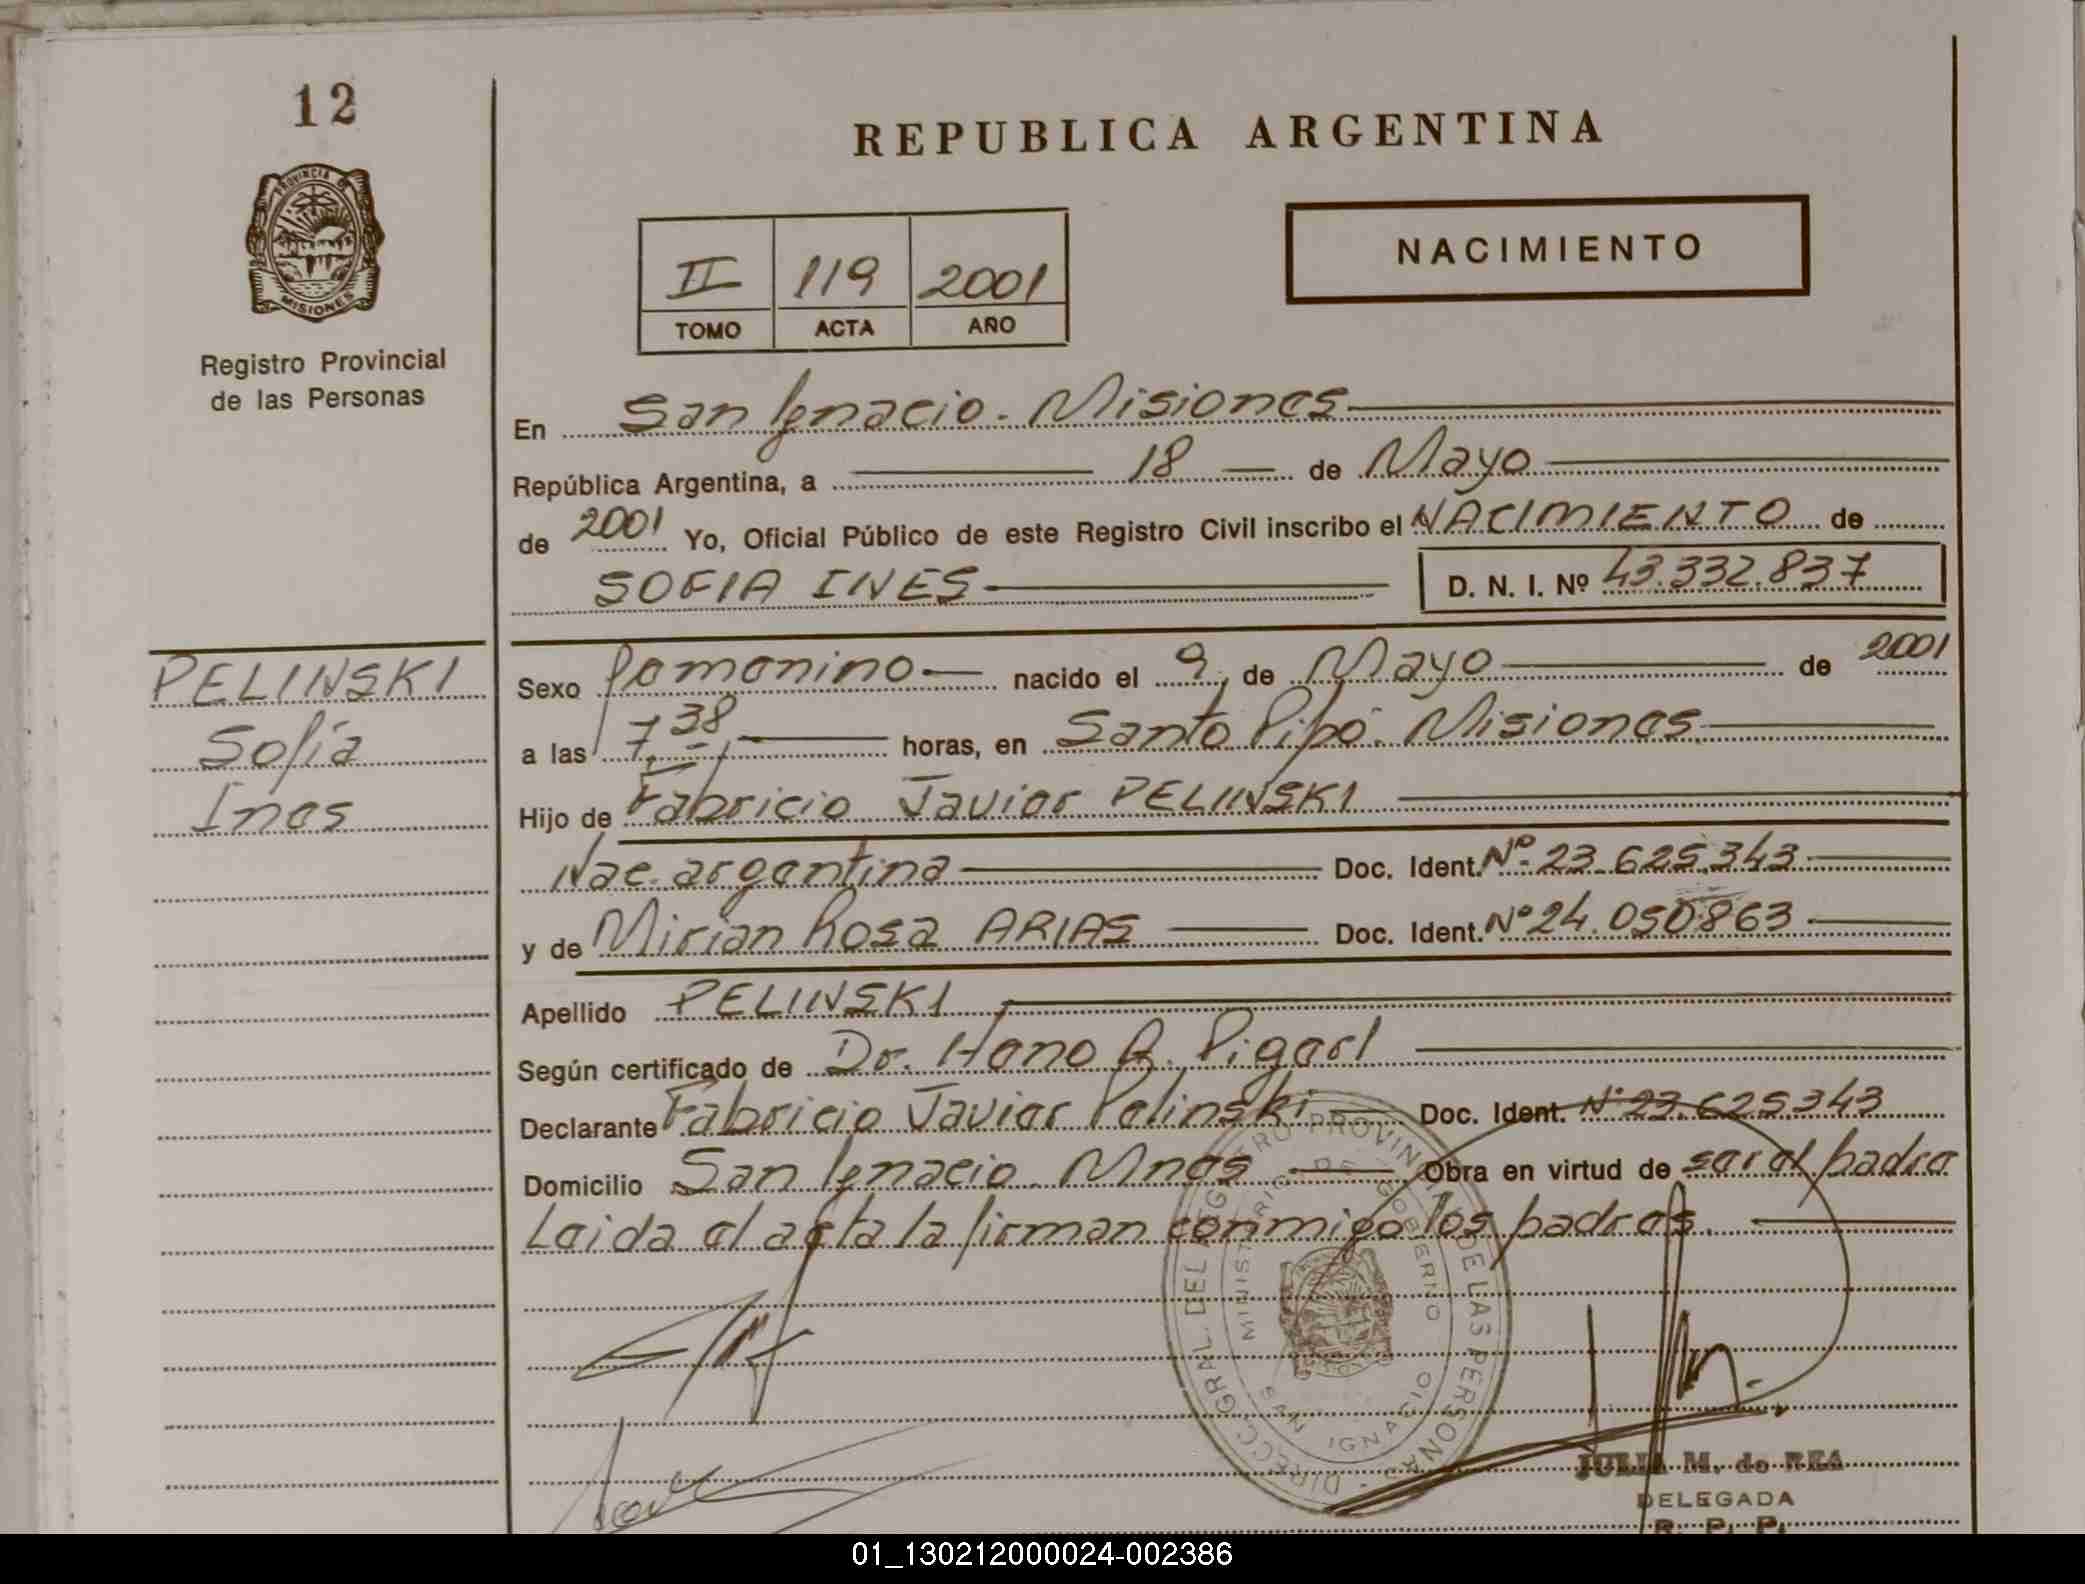 12
PROVINCIA DE
MISIONES
Registro Provincial
de las Personas
REPUBLICA ARGENTINA
NACIMIENTO
II 119 2001
TOMO ACTA AÑO
En San Ignacio - Misiones
República Argentina, a 18 de Mayo
de 2001 Yo, Oficial Público de este Registro Civil inscribo el NACIMIENTO de
SOFIA INES D. N. I. Nº 43.332.837
PELINSKI
Sofía
Ines
Sexo femenino nacido el 9 de Mayo de 2001
a las 7,38 horas, en Santo Pipó. Misiones
Hijo de Fabricio Javier PELINSKI
Nac. argentina Doc. Ident. Nº 23.625.343
y de Mirian Rosa ARIAS Doc. Ident. Nº 24.050863
Apellido PELINSKI
Según certificado de Dr. Hano R.
Declarante Fabricio Javier Pelinski Doc. Ident. Nº 23.625343
Domicilio San Ignacio. Mnes Obra en virtud de ser el padre
Leida el acta la firman conmigo los padres.
DIRECC. GRAL. DEL REGISTRO PROVINCIAL DE LAS PERSONAS
MINISTERIO DE GOBIERNO
SAN IGNACIO
JULIA M. de REA
DELEGADA
R. P. P.
01_130212000024-002386